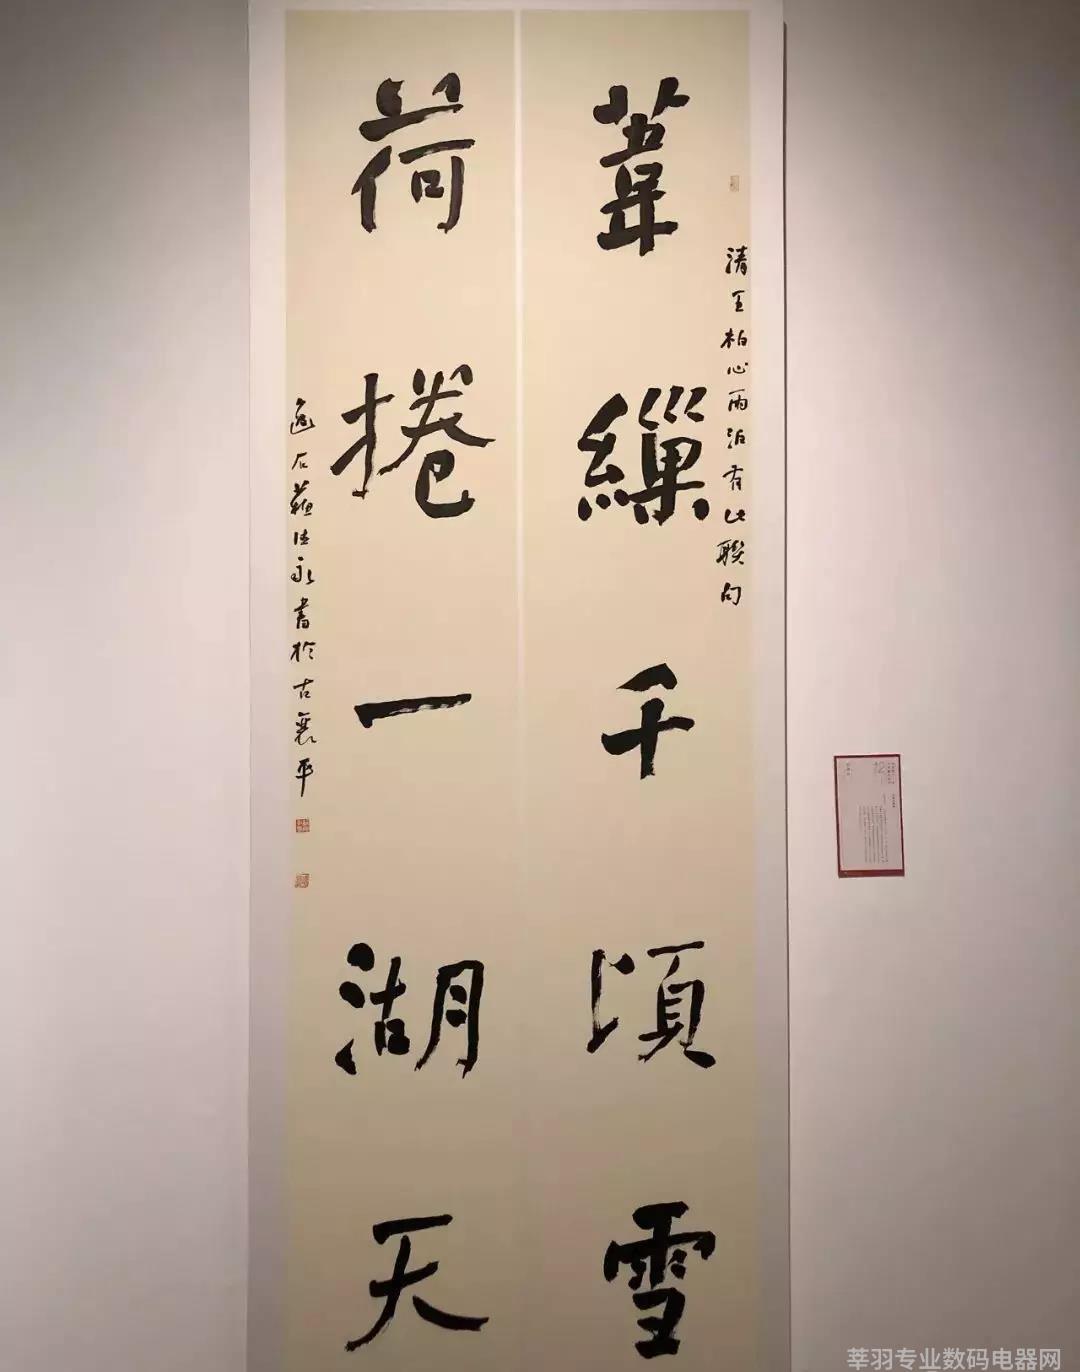 葦繅千頃雪
清王柏心雨泊有此聯句
荷捲一湖天
逸石蘇法永書於古襄平
莘羽专业数码电器网